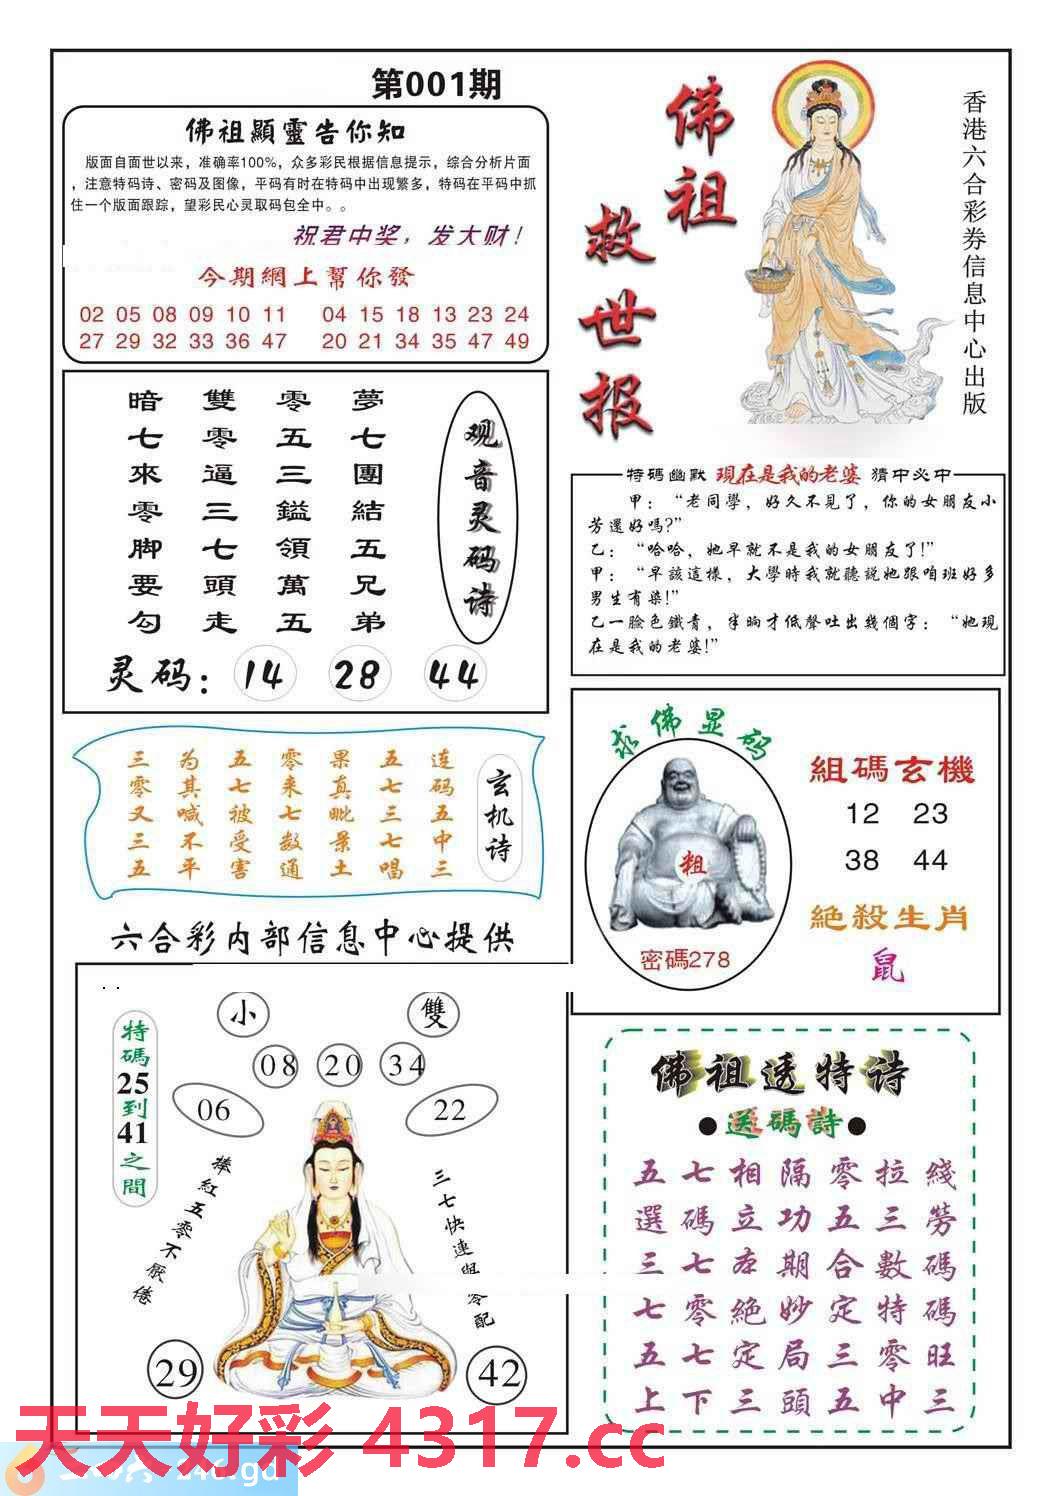 第001期
佛祖顯靈告你知
版面自面世以来，准确率100%，众多彩民根据信息提示，综合分析片面
，注意特码诗、密码及图像，平码有时在特码中出现繁多，特码在平码中抓
住一个版面跟踪，望彩民心灵取码包全中。。
祝君中奖，发大财！
今期網上幫你發
02 05 08 09 10 11 04 15 18 13 23 24
27 29 32 33 36 47 20 21 34 35 47 49
佛祖
救世报
香港六合彩券信息中心出版
观音灵码诗
夢七團結五兄弟
零五三鎰領萬五
雙零逼三七頭走
暗七來零脚要勾
灵码：14 28 44
特碼幽默 現在是我的老婆 猜中必中
甲：“老同學，好久不見了，你的女朋友小
芳還好嗎?”
乙：“哈哈，她早就不是我的女朋友了!”
甲：“早該這樣，大學時我就聽説她跟咱班好多
男生有染!”
乙一臉色鐵青，半晌才低聲吐出幾個字：“她現
在是我的老婆!”
玄机诗
连码五中三
五七三七唱
果真毗景土
零来七数通
五七被受害
为其喊不平
三零又三五
求佛显码
粗
密碼278
組碼玄機
12 23
38 44
絶殺生肖
鼠
六合彩内部信息中心提供
小 雙
08 20 34
06 22
特碼25到41之間
捧紅五零不厭倦
三七快連與零配
29 42
佛祖透特诗
●送碼詩●
五七相隔零拉綫
選碼立功五三勞
三七本期合數碼
七零絶妙定特碼
五七定局三零旺
上下三頭五中三
天天好彩 4317.cc
246.gd